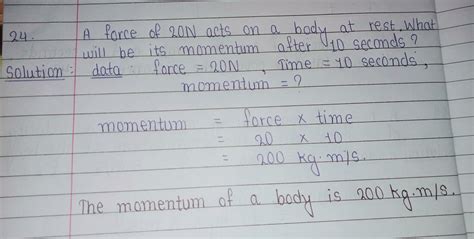 24. A force of 20N acts on a body at rest. What
will be its momentum after 10 seconds?
Solution: data: force = 20N, Time = 10 seconds,
momentum = ?
momentum = force × time
= 20 × 10
= 200 kg·m/s.
The momentum of a body is 200 kg·m/s.